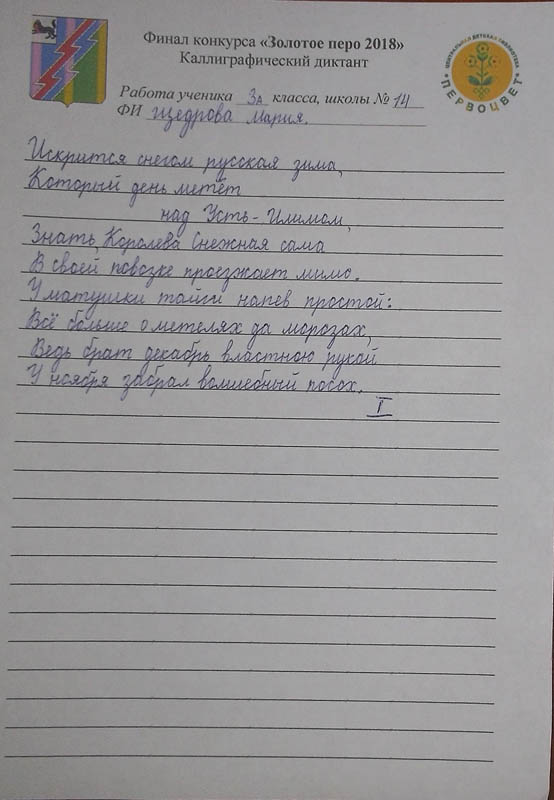 Финал конкурса «Золотое перо 2018»
Каллиграфический диктант
ЦЕНТРАЛЬНАЯ ДЕТСКАЯ БИБЛИОТЕКА
ПЕРВОЦВЕТ
Работа ученика 3А класса, школы № 14
ФИ Щедрова Мария.
Искрится снегом русская зима,
Который день метёт
над Усть-Илимом,
Знать, Королева Снежная сама
В своей повозке проезжает мимо.
У матушки тайги напев простой:
Всё больше о метелях да морозах,
Ведь брат декабрь властною рукой
У ноября забрал волшебный посох.
I